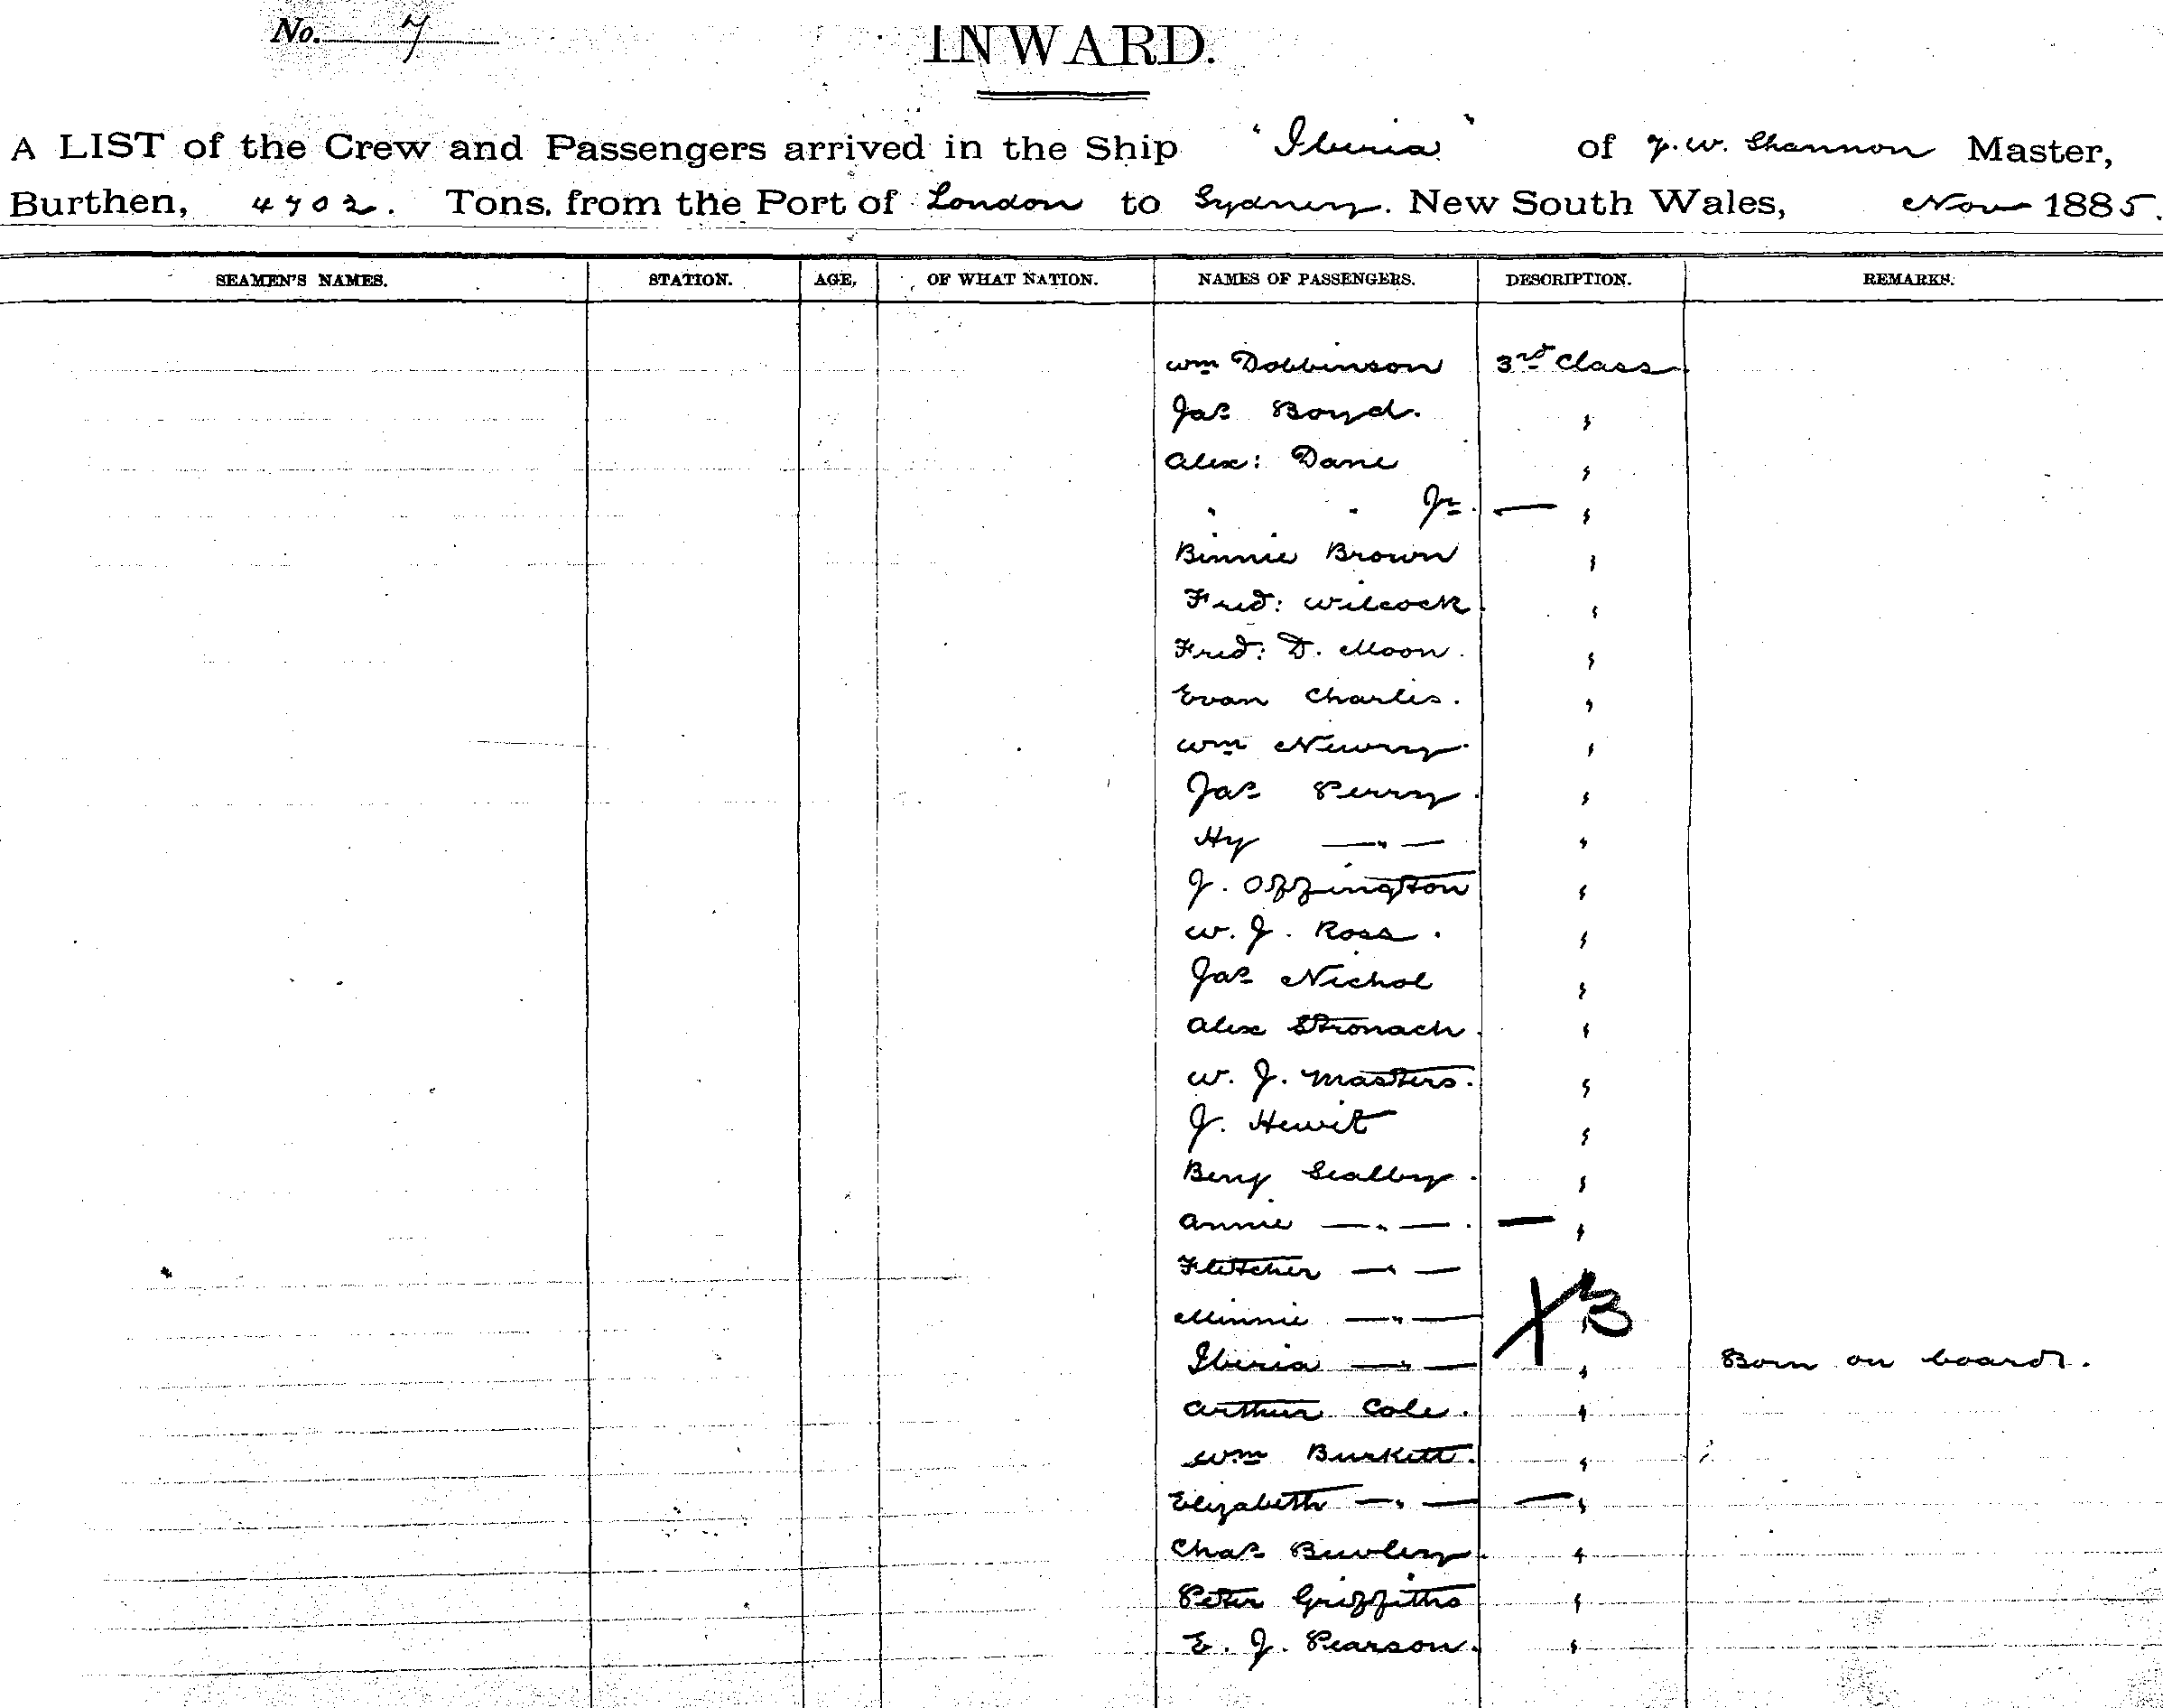 No. 7
INWARD.
A LIST of the Crew and Passengers arrived in the Ship "Iberia" of J. W. Shannon Master,
Burthen, 4702. Tons, from the Port of London to Sydney. New South Wales, Nov 1885.
SEAMEN'S NAMES. STATION. AGE. OF WHAT NATION. NAMES OF PASSENGERS. DESCRIPTION. REMARKS.
Wm Dobbinson 3rd Class
Jas Boyd. "
Alex: Dane "
" " Jr. — "
Binnie Brown "
Fred: Wilcock "
Fred: D. Moon. "
Evan Charles. "
Wm Newry. "
Jas Perry. "
Hy — " — "
J. Offington "
W. J. Ross. "
Jas Nichol "
Alex Stronach. "
W. J. Masters. "
J. Hewit "
Benj Scalby. "
Annie — " — . — "
Fletcher — " — "
Minnie — " — X 3 "
Iberia — " — " Born on board.
Arthur Cole. "
Wm Burkett. "
Elizabeth — " — — "
Chas Bewley. "
Peter Griffiths "
E. J. Pearson. "